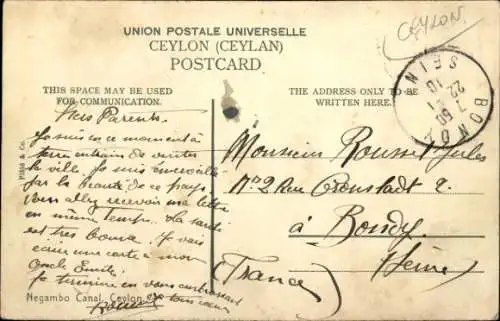 CEYLON.
UNION POSTALE UNIVERSELLE
CEYLON (CEYLAN)
POSTCARD
THIS SPACE MAY BE USED
FOR COMMUNICATION.
THE ADDRESS ONLY TO BE
WRITTEN HERE.
BONDY
SEINE
Plâté & Co.
Mes Parents
Je suis en ce moment à
terre en train de visiter
la ville. Je suis émerveillé
par la beauté de ce pays.
Vous allez recevoir une lettre
en même temps. La santé
est très bonne. Je vais
écrire une carte à mon
oncle Emile.
Je termine en vous embrassant
tous
Negambo Canal, Ceylon
Monsieur Rousset Jules
Nº 2 Rue Cronstadt 2.
à Bondy.
(Seine)
(France)